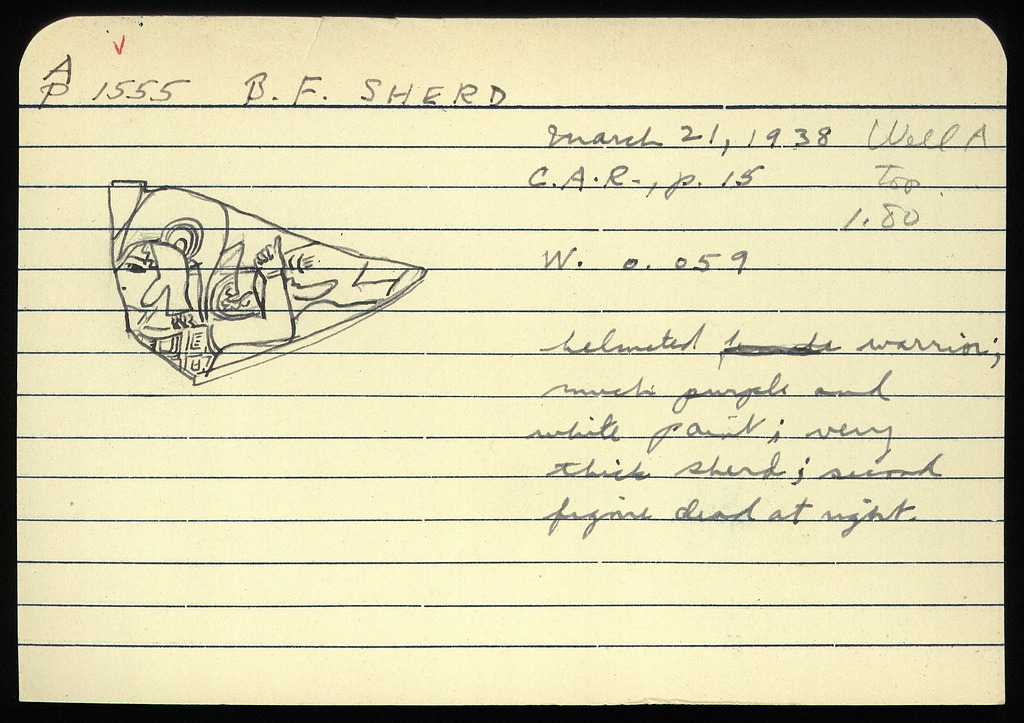 A
P 1555 B. F. SHERD
March 21, 1938 Well A
C.A.R., p. 15 Top.
1.80
W. 0.059
helmeted warrior;
much purple and
white paint; very
thick sherd; second
figure dead at right.